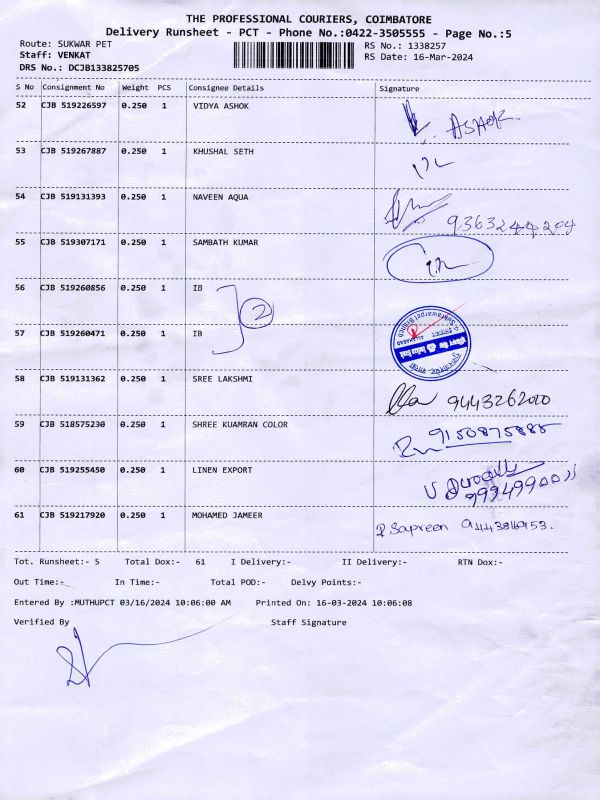 THE PROFESSIONAL COURIERS, COIMBATORE
Delivery Runsheet - PCT - Phone No.:0422-3505555 - Page No.:5
Route: SUKWAR PET RS No.: 1338257
Staff: VENKAT RS Date: 16-Mar-2024
DRS No.: DCJB133825705
S No Consignment No Weight PCS Consignee Details Signature
52 CJB 519226597 0.250 1 VIDYA ASHOK ASHOK
53 CJB 519267887 0.250 1 KHUSHAL SETH
54 CJB 519131393 0.250 1 NAVEEN AQUA 9363244204
55 CJB 519307171 0.250 1 SAMBATH KUMAR
56 CJB 519260856 0.250 1 IB
2
57 CJB 519260471 0.250 1 IB
58 CJB 519131362 0.250 1 SREE LAKSHMI
59 CJB 518575230 0.250 1 SHREE KUAMRAN COLOR 9150875885
60 CJB 519255450 0.250 1 LINEN EXPORT
61 CJB 519217920 0.250 1 MOHAMED JAMEER
Tot. Runsheet:- 5 Total Dox:- 61 I Delivery:- II Delivery:- RTN Dox:-
Out Time:- In Time:- Total POD:- Delvy Points:-
Entered By :MUTHUPCT 03/16/2024 10:06:00 AM Printed On: 16-03-2024 10:06:08
Verified By Staff Signature